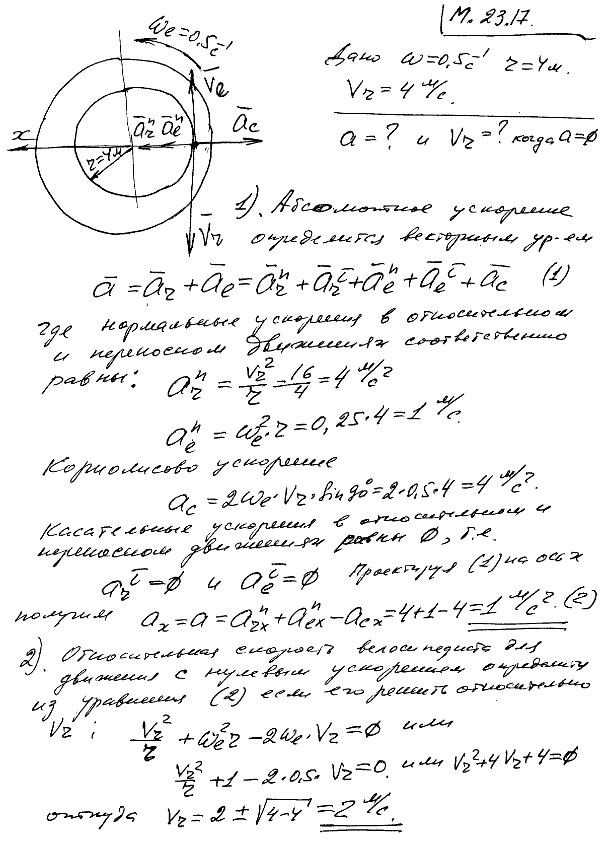 М. 23.17.
ωe=0,5c⁻¹
V̄e
x
āτⁿ āeⁿ
āc
τ=4м
V̄τ
Дано ω=0,5c⁻¹ τ=4м.
Vτ = 4 м/с.
a = ? и Vτ = ? когда a=ø
1). Абсолютное ускорение
определится векторным ур-ем
ā = āτ + āe = āτⁿ + āτ^τ + āeⁿ + āe^τ + āc (1)
где нормальные ускорения в относительном
и переносном движениях соответственно
равны: aτⁿ = Vτ²/τ = 16/4 = 4 м/с²
aeⁿ = ωe²·τ = 0,25·4 = 1 м/с.
Кориолисово ускорение
ac = 2ωe·Vτ·sin90° = 2·0,5·4 = 4 м/с².
Касательные ускорения в относительном и
переносном движениях равны ø, т.е.
aτ^τ = ø и ae^τ = ø Проектируя (1) на ось x
получим ax = a = aτxⁿ + aexⁿ − acx = 4+1−4 = 1 м/с². (2)
2). Относительная скорость велосипедиста для
движения с нулевым ускорением определится
из уравнения (2) если его решить относительно
Vτ: Vτ²/τ + ωe²τ − 2ωe·Vτ = ø или
Vτ²/τ + 1 − 2·0,5·Vτ = 0. или Vτ²+4Vτ+4=ø
откуда Vτ = 2 ± √4−4 = 2 м/с.